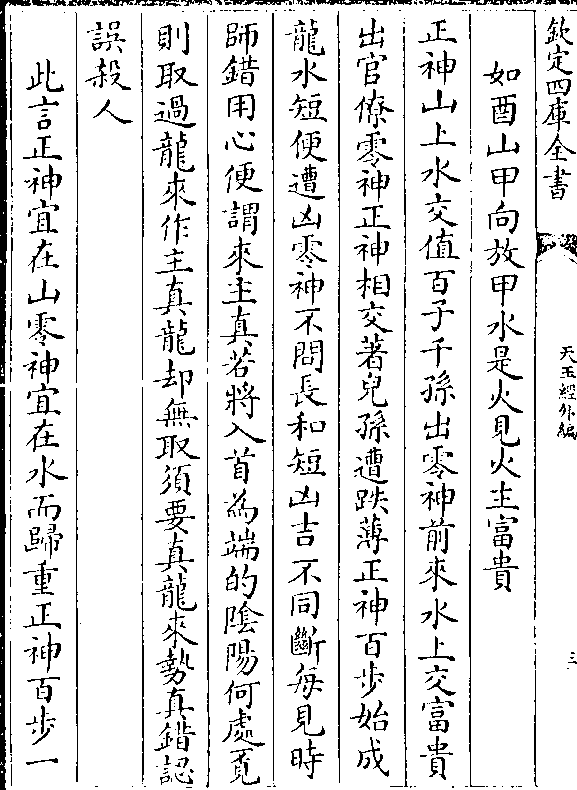 欽定四庫全書
天玉經外編
三
如酉山甲向放甲水是火見火主富貴
正神山上水交值百子千孫出零神前來水上交富貴
出官僚零神正神相交著兒孫遭跌薄正神百步始成
龍水短便遭凶零神不問長和短凶吉不同斷每見時
師錯用心便謂來主真若將入首為端的陰陽何處覓
則取過龍來作主真龍却無取須要真龍來勢真錯認
誤殺人
此言正神宜在山零神宜在水而歸重正神百步一